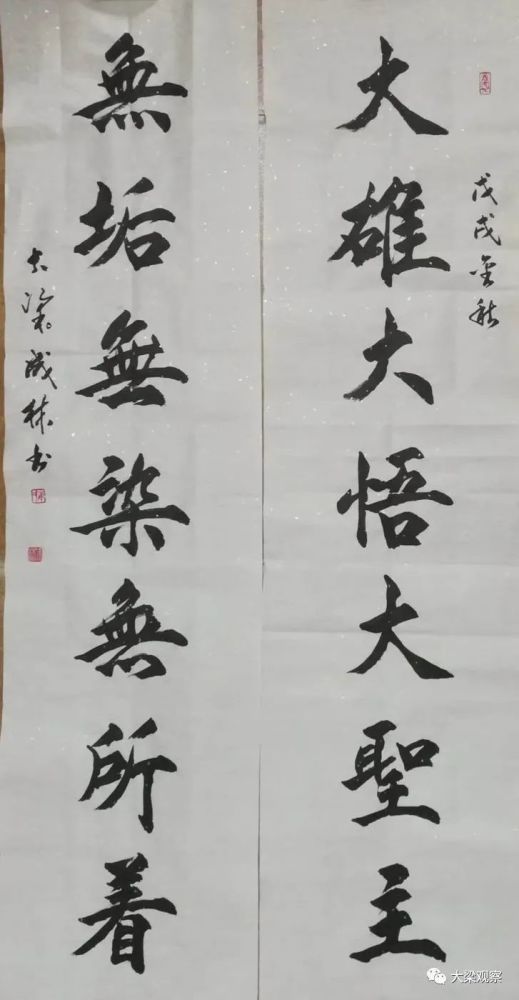 戊戌金秋
大雄大悟大聖主
無垢無染無所着
大梁成林书
大梁观察